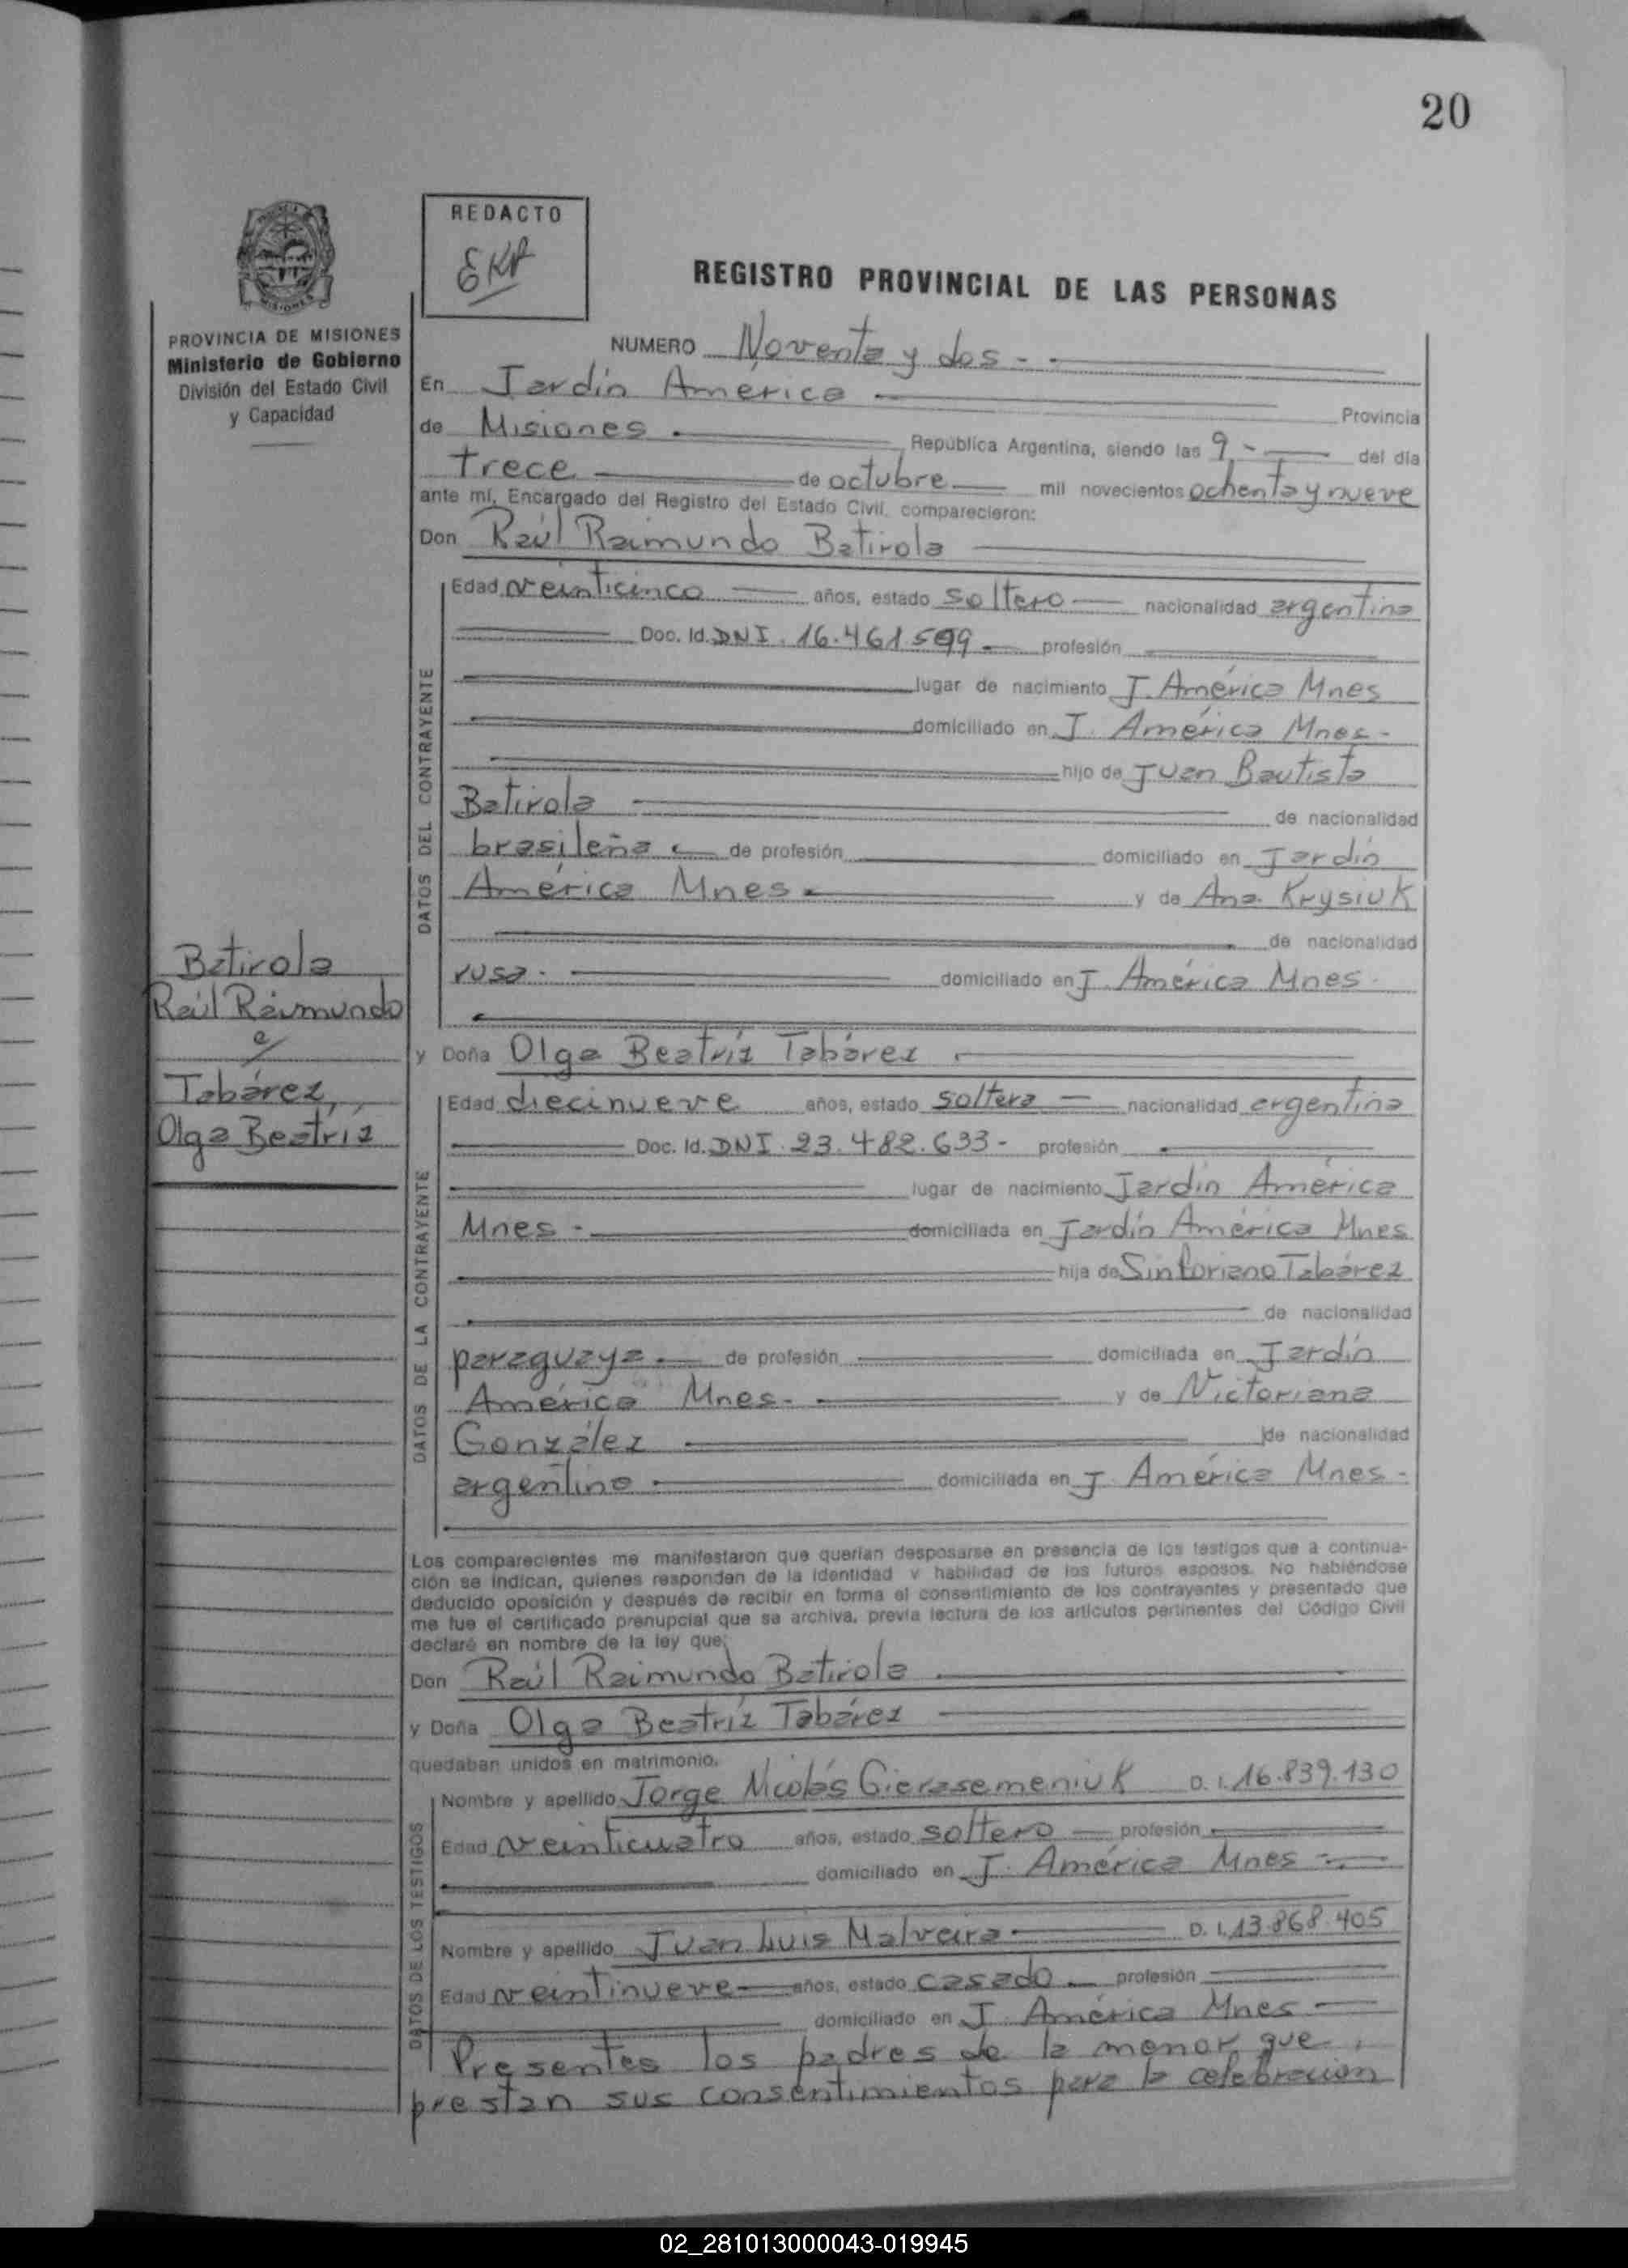 20
REDACTO
EKA
REGISTRO PROVINCIAL DE LAS PERSONAS
PROVINCIA DE MISIONES
Ministerio de Gobierno
División del Estado Civil
y Capacidad
NUMERO Noventa y dos -
En Jardín América Provincia
de Misiones República Argentina, siendo las 9 - del día
trece de octubre mil novecientos ochenta y nueve
ante mí, Encargado del Registro del Estado Civil, comparecieron:
Don Raúl Raimundo Batirola
DATOS DEL CONTRAYENTE
Edad veinticinco años, estado soltero nacionalidad argentina
Doc. Id. DNI. 16.461.599 - profesión
lugar de nacimiento J. América Mnes
domiciliado en J. América Mnes -
hijo de Juan Bautista
Batirola de nacionalidad
brasileña de profesión domiciliado en Jardín
América Mnes y de Ana Krysiuk
de nacionalidad
rusa - domiciliado en J. América Mnes -
Batirola
Raúl Raimundo
c/
Tabárez,
Olga Beatríz
y Doña Olga Beatríz Tabárez
DATOS DE LA CONTRAYENTE
Edad diecinueve años, estado soltera nacionalidad argentina
Doc. Id. DNI. 23.482.633 - profesión
lugar de nacimiento Jardín América
Mnes - domiciliada en Jardín América Mnes
hija de Sinforiano Tabárez
de nacionalidad
paraguaya de profesión domiciliada en Jardín
América Mnes - y de Victoriana
González de nacionalidad
argentina domiciliada en J. América Mnes -
Los comparecientes me manifestaron que querían desposarse en presencia de los testigos que a continua-
ción se indican, quienes responden de la identidad y habilidad de los futuros esposos. No habiéndose
deducido oposición y después de recibir en forma el consentimiento de los contrayentes y presentado que
me fue el certificado prenupcial que se archiva, previa lectura de los artículos pertinentes del Código Civil
declaré en nombre de la ley que:
Don Raúl Raimundo Batirola
y Doña Olga Beatríz Tabárez
quedaban unidos en matrimonio.
DATOS DE LOS TESTIGOS
Nombre y apellido Jorge Nicolás Gierasemeniuk D. I. 16.839.130
Edad veinticuatro años, estado soltero profesión
domiciliado en J. América Mnes -
Nombre y apellido Juan Luis Malveira D. I. 13.868.405
Edad veintinueve años, estado casado profesión
domiciliado en J. América Mnes
Presentes los padres de la menor, que
prestan sus consentimientos para la celebración
02_281013000043-019945